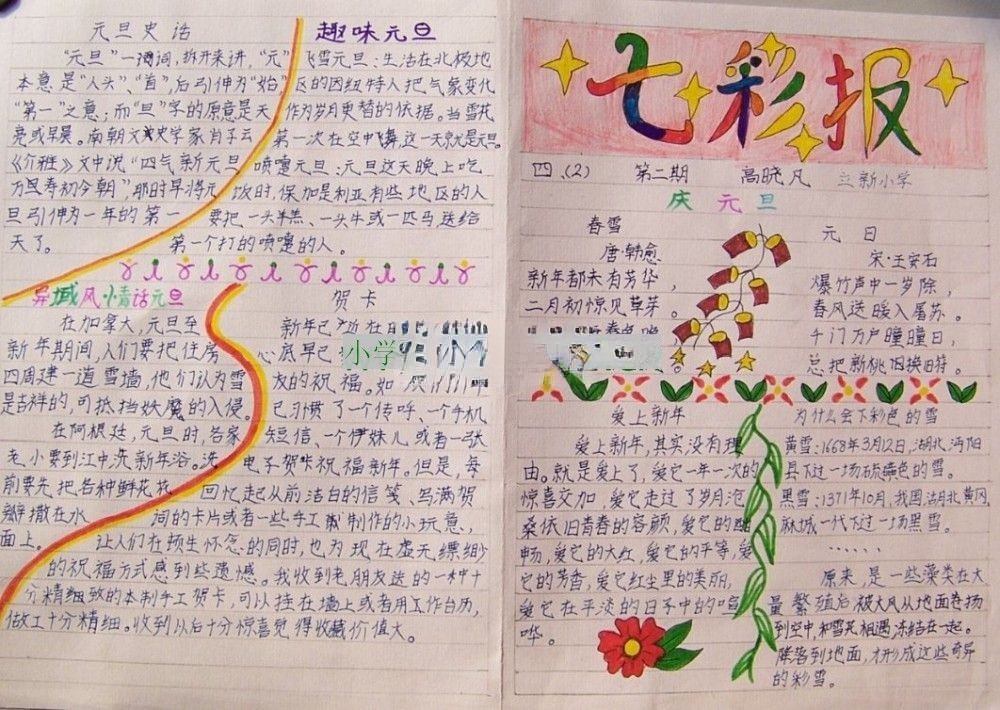 元旦史话
“元旦”一词,拆开来讲,“元”
本意是“人头”、“首”,后引伸为“始”
“第一”之意;而“旦”字的原意是天
亮或早晨。南朝文史学家肖子云
《介雅》文中说“四气新元旦
万民寿初今朝”那时早将元
旦引伸为一年的第一
天了。
趣味元旦
飞雪元旦:生活在北极地
区的因纽特人把气象变化
作为岁月更替的依据。当雪花
第一次在空中飞舞,这一天就是元旦。
喷嚏元旦:元旦这天晚上吃
饭时,保加利亚有些地区的人
要把一头羊羔、一头牛或一匹马送给
第一个打的喷嚏的人。
异域风情话元旦
在加拿大,元旦至
新年期间,人们要把住房
四周建一道雪墙,他们认为雪
是吉祥的,可抵挡妖魔的入侵。
在阿根廷,元旦时,各家
老小要到江中洗新年浴。洗
前要先把各种鲜花花
瓣撒在水
面上。
贺卡
新年已
心底早已
友的祝福。如
已习惯了一个传呼、一个手机
短信、一个伊妹儿,或者一张
电子贺卡祝福新年。但是,每
回忆起从前洁白的信笺、写满贺
词的卡片或者一些手工制作的小玩意,
让人们在顿生怀念的同时,也为现在虚无缥缈
的祝福方式感到些遗憾。我收到老朋友送的一种十
分精细致的本制手工贺卡,可以挂在墙上或者用工作台历,
做工十分精细。收到以后十分惊喜觉得收藏价值大。
小学
七彩报
四.(2) 第二期 高晓凡 立新小学
庆元旦
春雪
唐·韩愈
新年都未有芳华,
二月初惊见草芽。
元日
宋·王安石
爆竹声中一岁除,
春风送暖入屠苏。
千门万户曈曈日,
总把新桃换旧符。
爱上新年
爱上新年,其实没有理
由。就是爱上了,爱它一年一次的
惊喜交加,爱它走过了岁月沧
桑依旧青春的容颜,爱它的
畅,爱它的大红,爱它的平等,爱
它的芳香,爱它红尘里的美丽,
爱它在平淡的日子中的喧
哗。
为什么会下彩色的雪
黄雪:1668年3月12日,湖北,沔阳
县下过一场硫磺色的雪。
黑雪:1371年10月,我国湖北黄冈
麻城一代下过一场黑雪。
······
原来,是一些藻类在大
量繁殖后,被大风从地面卷扬
到空中,和雪花相遇,冻结在一起。
降落到地面,才形成这些奇异
的彩雪。